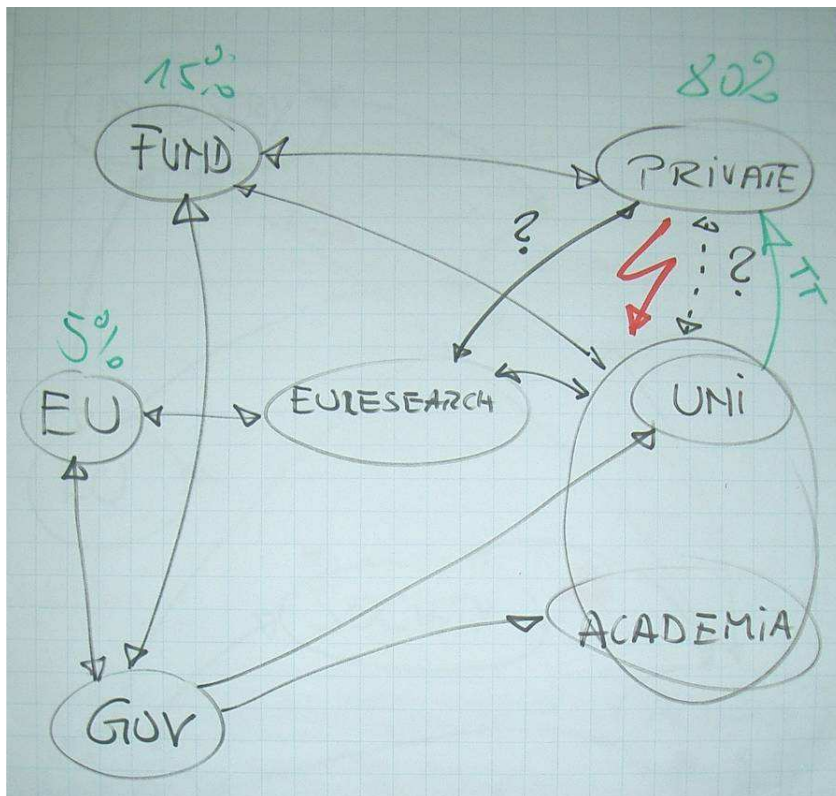 15%
80%
FUND
PRIVATE
?
?
TT
5%
EU
EURESEARCH
UNI
ACADEMIA
GOV